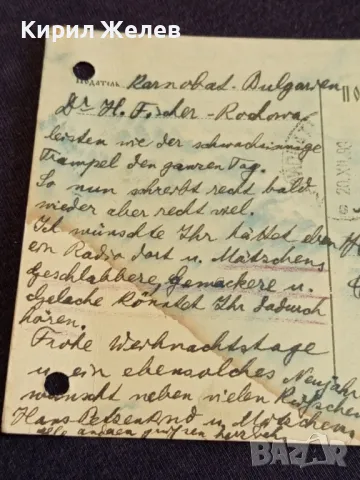 Кирил Желев
податель Karnobat-Bulgarien
Dr H. Fischer-Rochowa
leisten wie der schwachsinnige
Trampel den ganzen Tag.
So nun schreibt recht bald
wieder aber recht viel.
Ich wünschte Ihr hättet eben
ein Radio dort u. Mätschens
Geschlabbere, Gemackere u.
Gelache könntet Ihr dadurch
hören.
Frohe Weihnachtstage
u. ein ebensolches Neujahr
wünscht neben vielen
Hans u. Mätschen
alle andern grüßen herzlich
ПО
20.XII
bazar